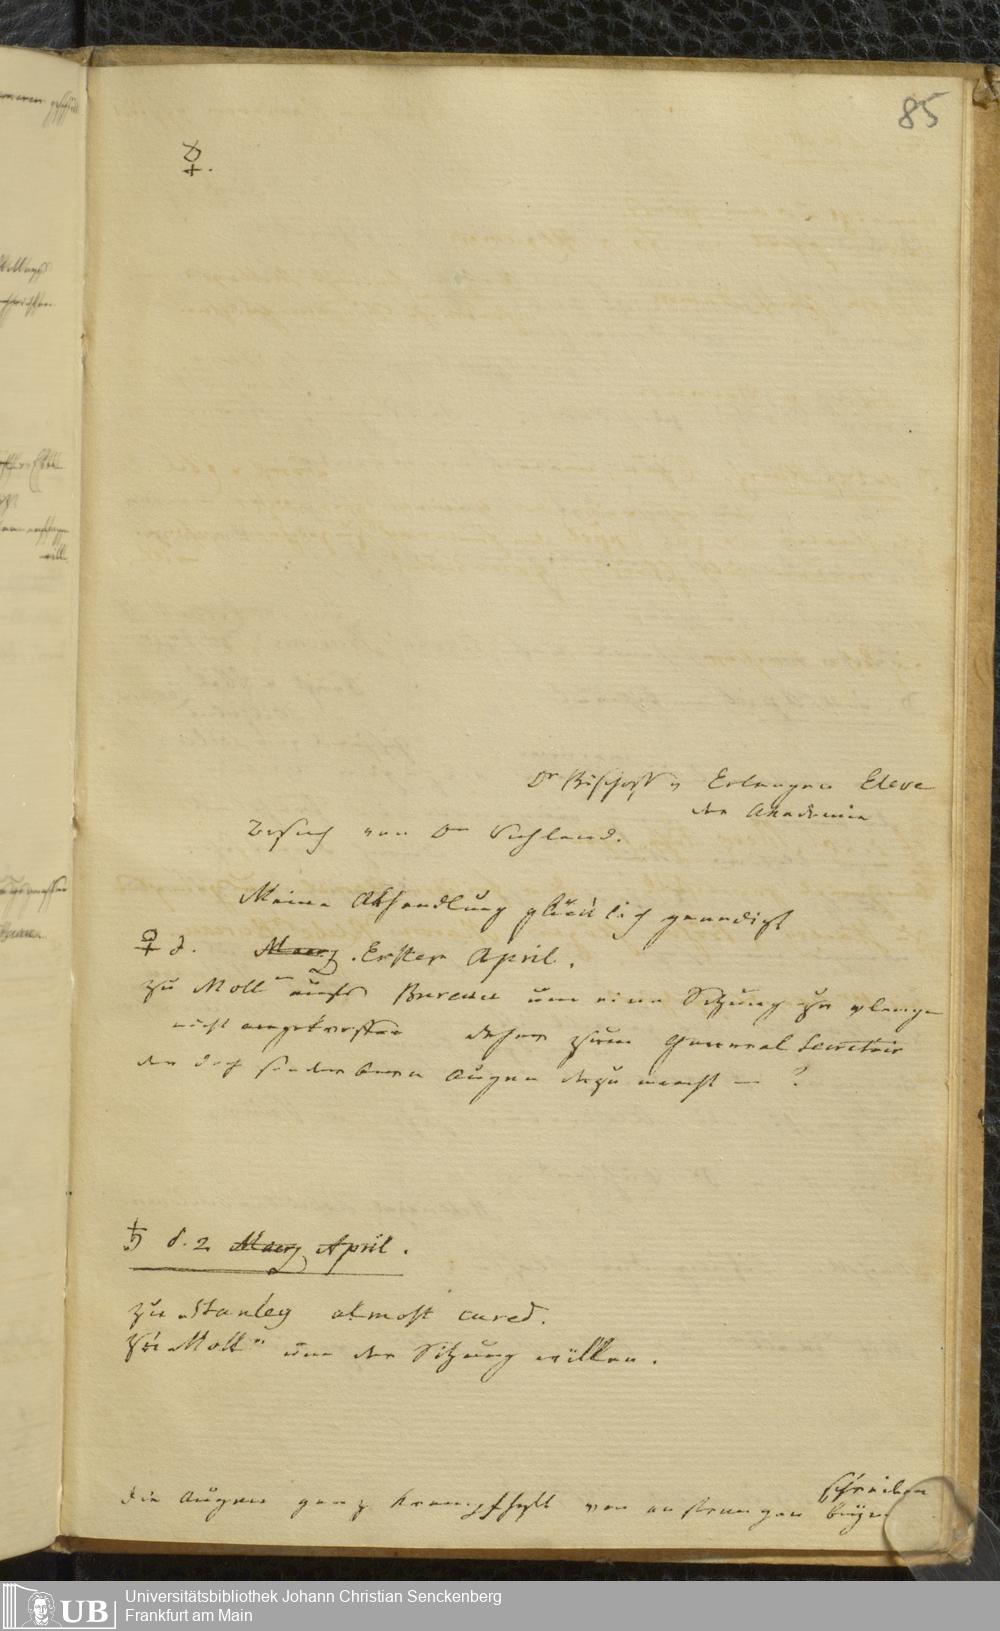 85
☿.
Dr Bischoff v Erlangen Eleve
der Akademie
Besuch von Dr Uhland.
Meine Abhandlung glücklich geendigt
♀ d. Maerz. Erster April.
zu Moll aufs Bureau um eine Sitzung zu
nicht angetroffen daher zum General Secretair
der doch sonderbare Augen dazu macht — ?
♄ d. 2 Maerz April.
zu Stanley almost cured.
zu Moll um der Sitzung willen.
schreiben
die Augen ganz krampfhaft von
Universitätsbibliothek Johann Christian Senckenberg
Frankfurt am Main
UB